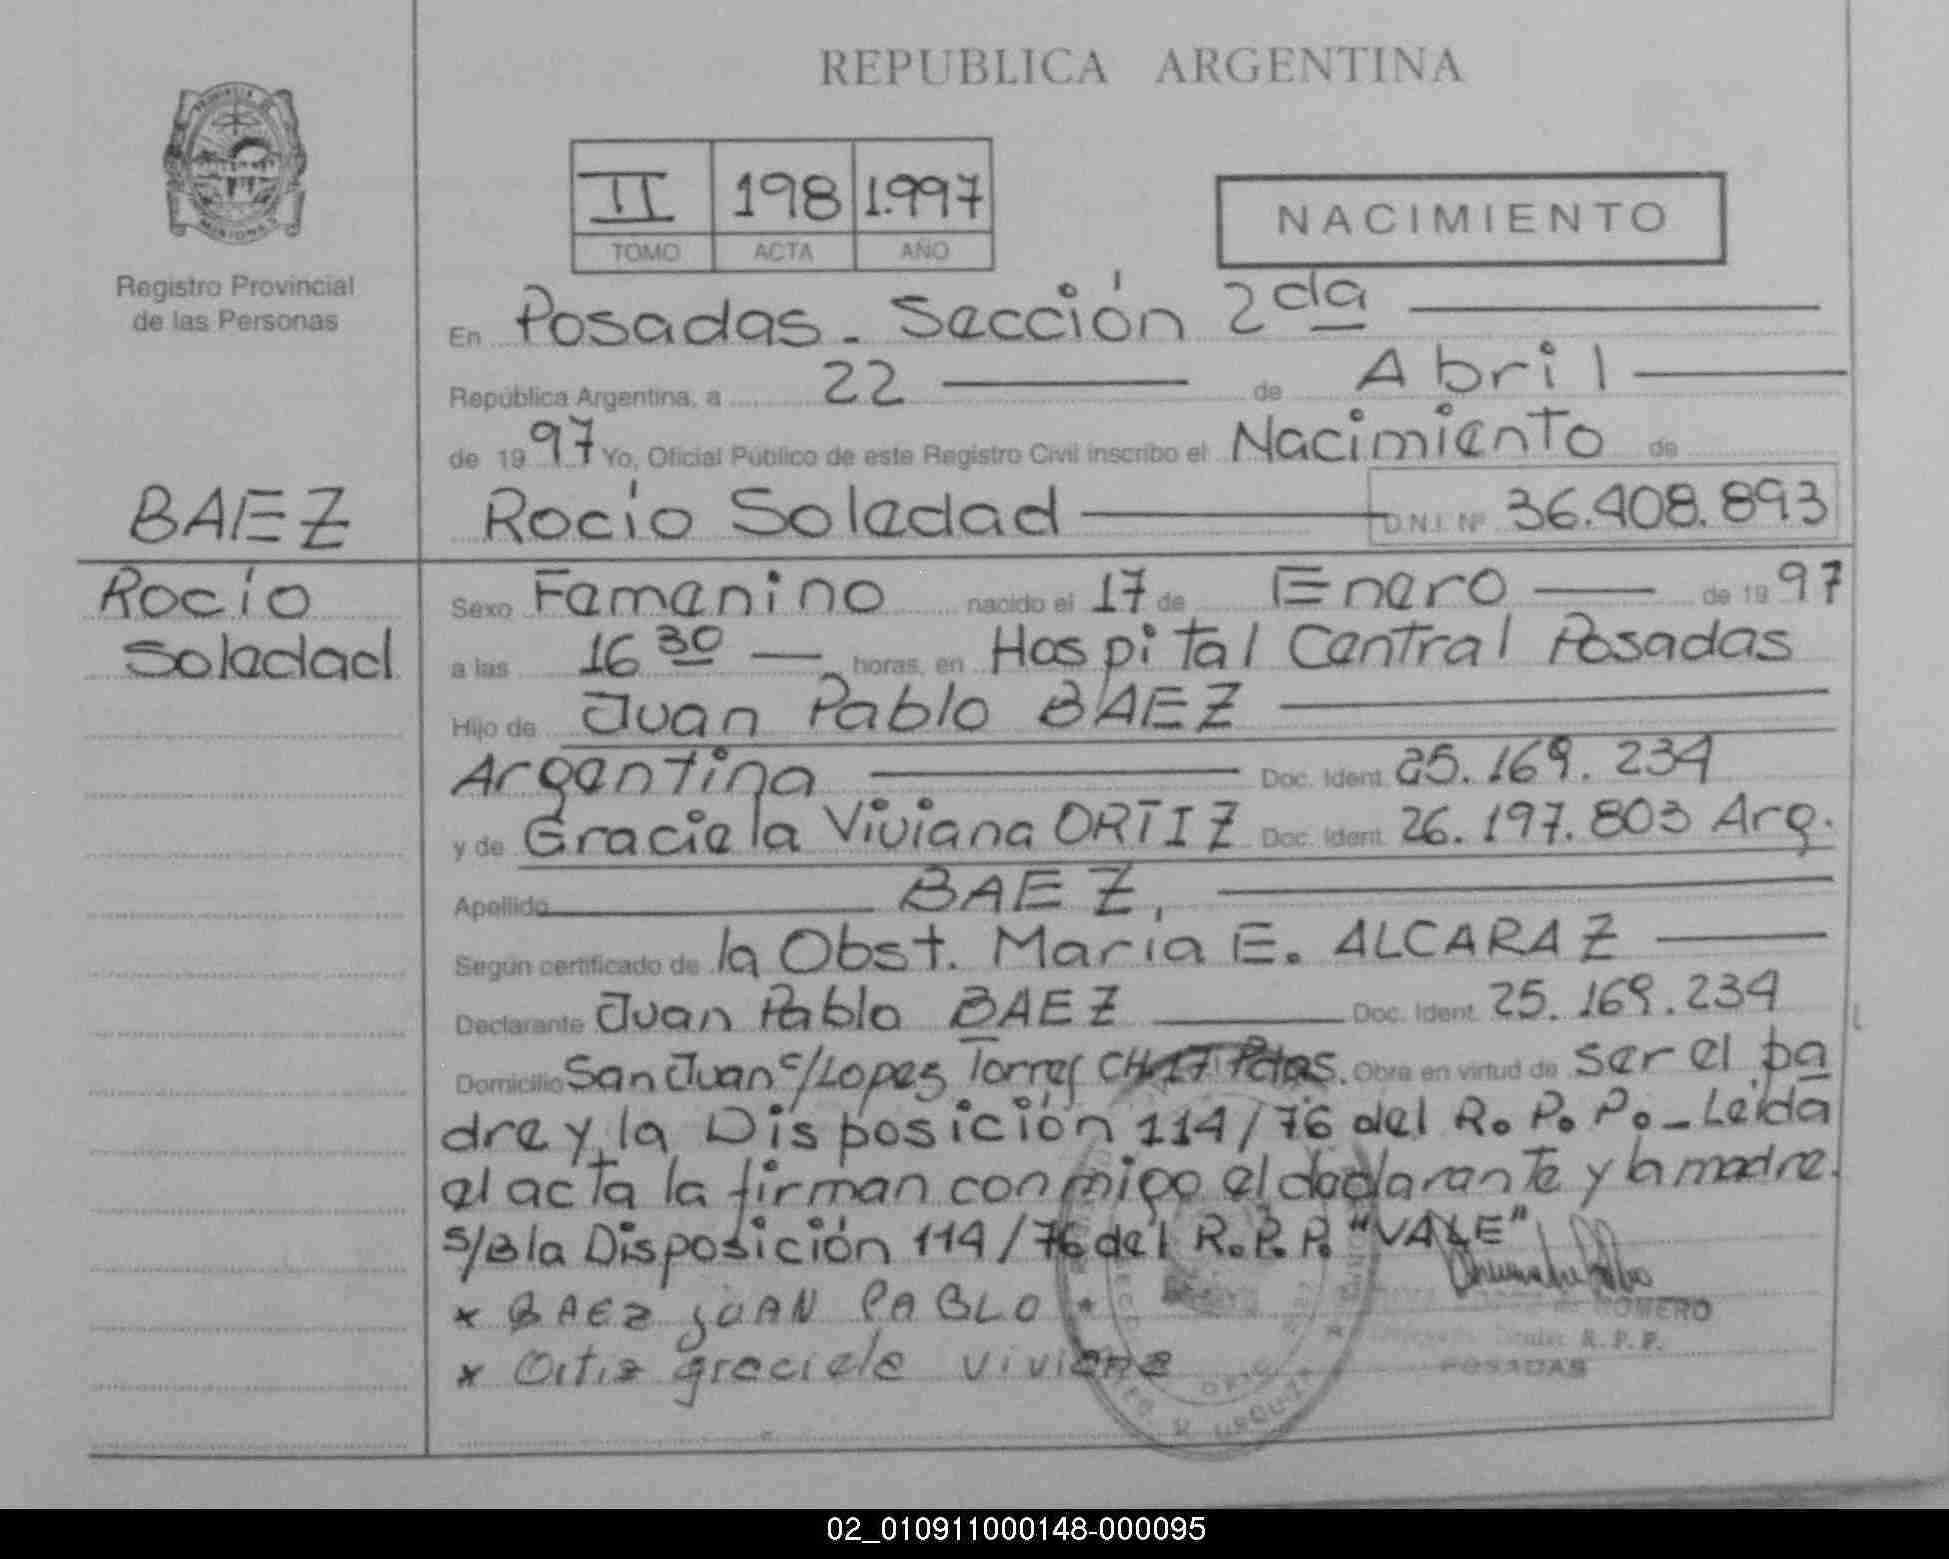 REPUBLICA ARGENTINA
PROVINCIA DE
MISIONES
Registro Provincial
de las Personas
II 198 1.997
TOMO ACTA AÑO
NACIMIENTO
En Posadas. Sección 2da
República Argentina, a 22 de Abril
de 1997 Yo, Oficial Público de este Registro Civil inscribo el Nacimiento de
BAEZ
Rocío Soledad D.N.I. Nº 36.408.893
Rocío
Soledad
Sexo Femenino nacido el 17 de Enero de 1997
a las 16 30 horas, en Hospital Central Posadas
Hijo de Juan Pablo BAEZ
Argentina Doc. Ident. 25.169.234
y de Graciela Viviana ORTIZ Doc. Ident. 26.197.803 Arg.
Apellido BAEZ,
Según certificado de la Obst. María E. ALCARAZ
Declarante Juan Pablo BAEZ Doc. Ident. 25.169.234
Domicilio San Juan c/Lopez Torres CH 17 Pdas. Obra en virtud de ser el pa
dre y la Disposición 114/76 del R.P.P.- Leída
el acta la firman conmigo el declarante y la madre.
s/B la Disposición 114/76 del R.P.P. "VALE"
x BAEZ JUAN PABLO
x Ortiz graciela viviana
ROMERO
Titular R.P.P.
POSADAS
URQUIZA
02_010911000148-000095